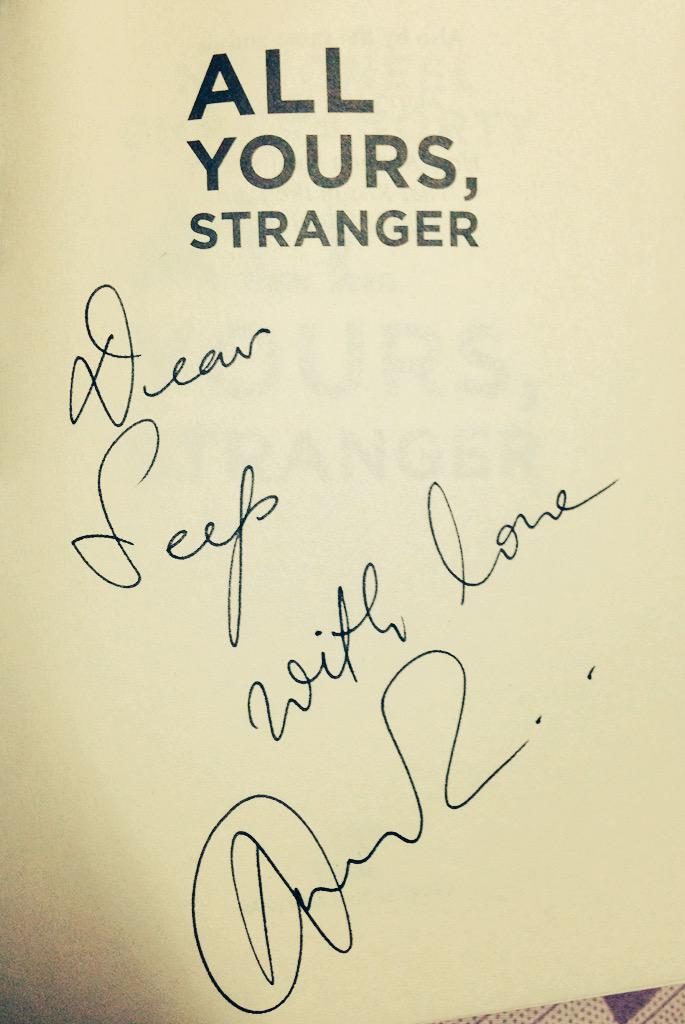 ALL
YOURS,
STRANGER
Dear
Seep
with love